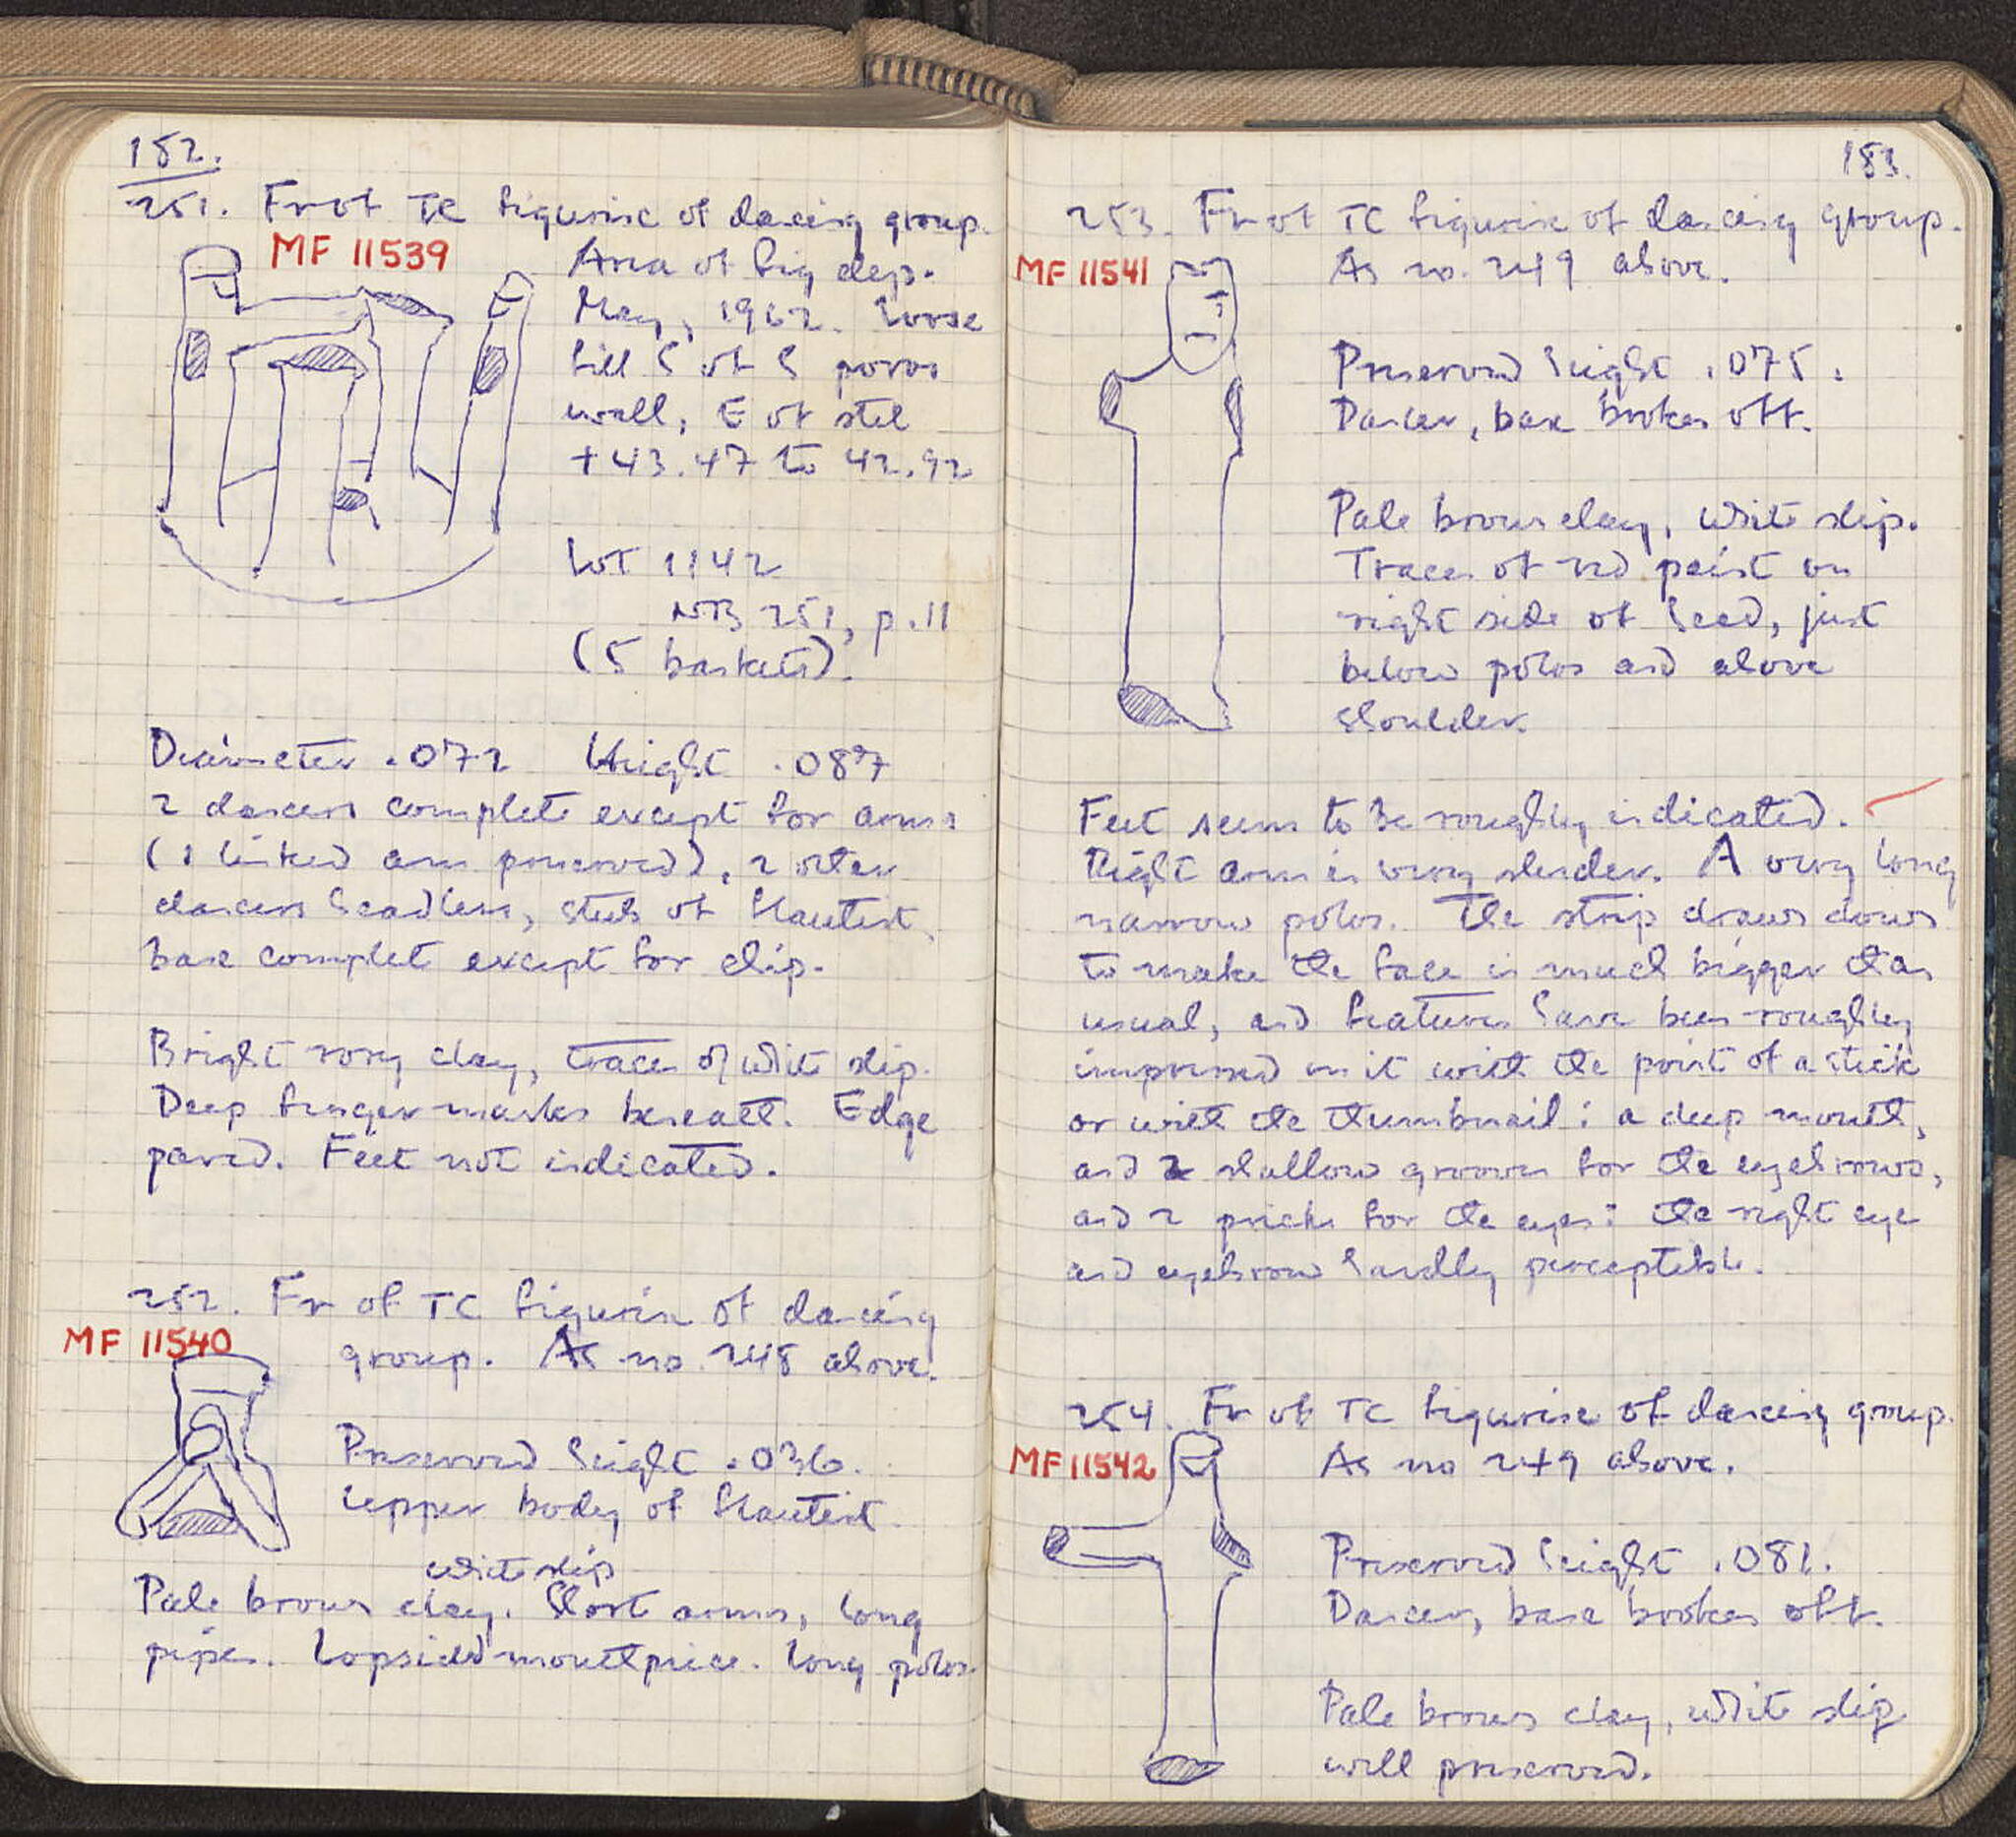 152.
251. Fr of TC figurine of dancing group.
MF 11539
Area of big dep.
May, 1962. Loose
fill S of S poros
wall, E of stel
+43.47 to 42.92
Lot 1142
NB 251, p.11
(5 baskets).
Diameter .072 Height .087
2 dancers complete except for arms
(1 linked arm preserved), 2 other
dancers headless, stub of flautist,
base complete except for chip.
Bright rosy clay, traces of white slip.
Deep finger marks beneath. Edge
pared. Feet not indicated.
252. Fr of TC figurine of dancing
MF 11540
group. As no. 248 above.
Preserved height .036.
Upper body of flautist.
white slip
Pale brown clay. Short arms, long
pipes. Lopsided mouthpiece. Long polos.
153.
253. Fr of TC figurine of dancing group.
MF 11541
As no. 249 above.
Preserved height .075.
Dancer, base broken off.
Pale brown clay, white slip.
Traces of red paint on
right side of head, just
below polos and above
shoulder.
Feet seem to be roughly indicated.
Right arm is very slender. A very long
narrow polos. The strip drawn down
to make the face is much bigger than
usual, and features have been roughly
impressed on it with the point of a stick
or with the thumbnail: a deep mouth,
and 2 shallow grooves for the eyebrows,
and 2 pricks for the eyes: the right eye
and eyebrow hardly perceptible.
254. Fr of TC figurine of dancing group.
MF 11542
As no 249 above.
Preserved height .081.
Dancer, base broken off.
Pale brown clay, white slip
well preserved.